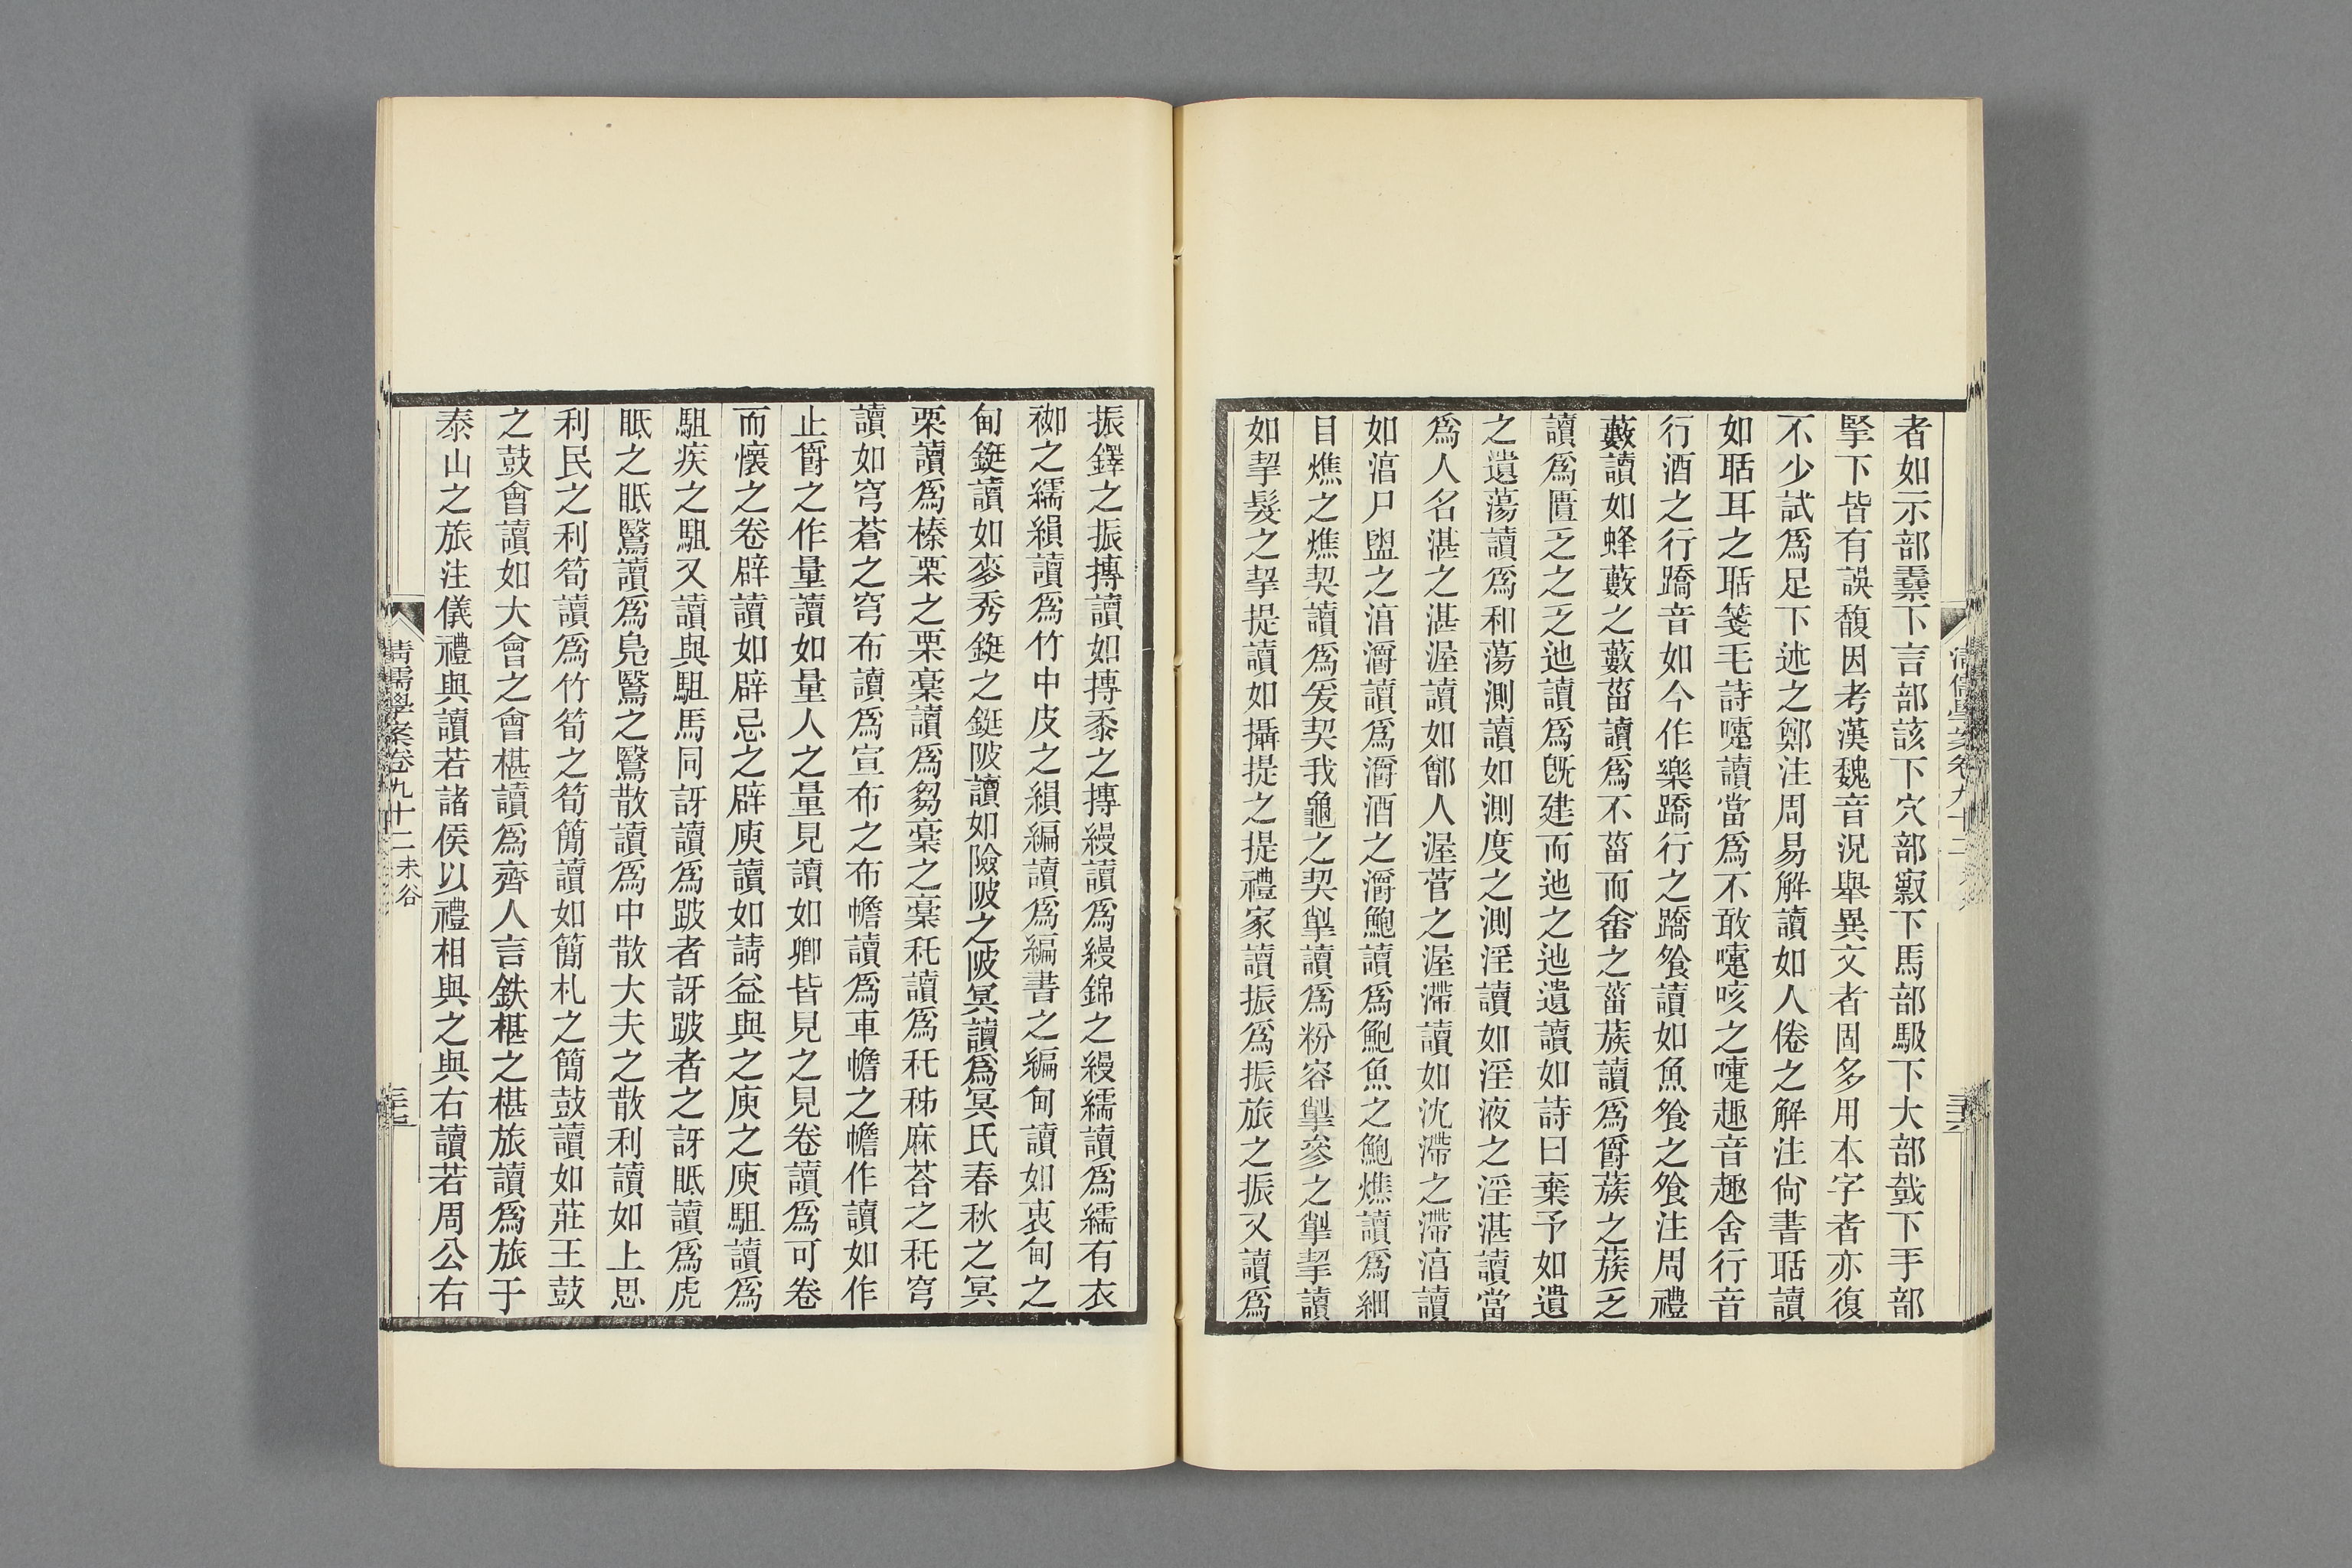 者如示部䨮下言部該下穴部竅下馬部馺下大部㦰下手部
掔下皆有誤馥因考漢魏音況舉異文者固多用本字者亦復
不少試爲足下述之鄭注周易解讀如人倦之解注尙書聒讀
如聒耳之聒箋毛詩嚏讀當爲不敢嚏咳之嚏趣音趣舍行音
行酒之行蹻音如今作樂蹻行之蹻飧讀如魚飧之飧注周禮
藪讀如蜂藪之藪菑讀爲不菑而畬之菑蔟讀爲爵蔟之蔟乏
讀爲匱乏之乏池讀爲旣建而池之池遺讀如詩曰棄予如遺
之遺蕩讀爲和蕩測讀如測度之測淫讀如淫液之淫湛讀當
爲人名湛之湛渥讀如鄫人渥菅之渥滯讀如沈滯之滯湆讀
如湆尸盥之湆灂讀爲灂酒之灂鮑讀爲鮑魚之鮑燋讀爲細
目燋之燋契讀爲爰契我龜之契掣讀爲粉容掣參之掣挈讀
如挈髮之挈提讀如攝提之提禮家讀振爲振旅之振又讀爲
清儒學案卷九十二
振鐸之振摶讀如摶黍之摶縵讀爲縵錦之縵繻讀爲繻有衣
袽之繻縜讀爲竹中皮之縜編讀爲編書之編甸讀如衷甸之
甸鋌讀如麥秀鋌之鋌陂讀如險陂之陂冥讀爲冥氏春秋之冥
栗讀爲榛栗之栗稾讀爲芻稾之稾秅讀爲秅秭麻荅之秅穹
讀如穹蒼之穹布讀爲宣布之布幨讀爲車幨之幨作讀如作
止爵之作量讀如量人之量見讀如卿皆見之見卷讀爲可卷
而懷之卷辟讀如辟忌之辟庾讀如請益與之庾之庾駔讀爲
駔疾之駔又讀與駔馬同訝讀爲跛者訝跛者之訝眡讀爲虎
眡之眡鷖讀爲鳧鷖之鷖散讀爲中散大夫之散利讀如上思
利民之利筍讀爲竹筍之筍簡讀如簡札之簡鼓讀如莊王鼓
之鼓會讀如大會之會椹讀爲齊人言鈇椹之椹旅讀爲旅于
泰山之旅注儀禮與讀若諸侯以禮相與之與右讀若周公右
清儒學案卷九十二未谷